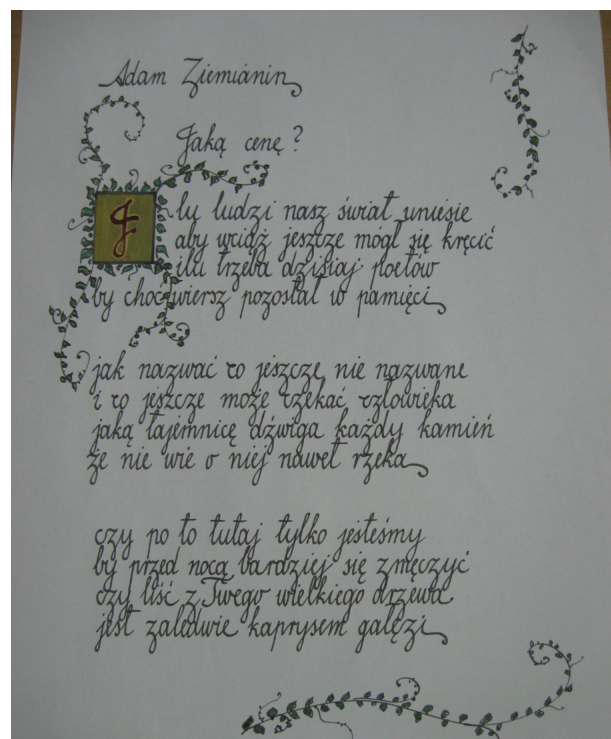 Adam Ziemianin
Jaką cenę?
Ilu ludzi nasz świat uniesie
aby wciąż jeszcze mógł się kręcić
ilu trzeba dzisiaj poetów
by choć wiersz pozostał w pamięci
jak nazwać co jeszcze nie nazwane
i co jeszcze może czekać człowieka
jaką tajemnicę dźwiga każdy kamień
że nie wie o niej nawet rzeka
czy po to tutaj tylko jesteśmy
by przed nocą bardziej się zmęczyć
czy liść z Twego wielkiego drzewa
jest zaledwie kaprysem gałęzi